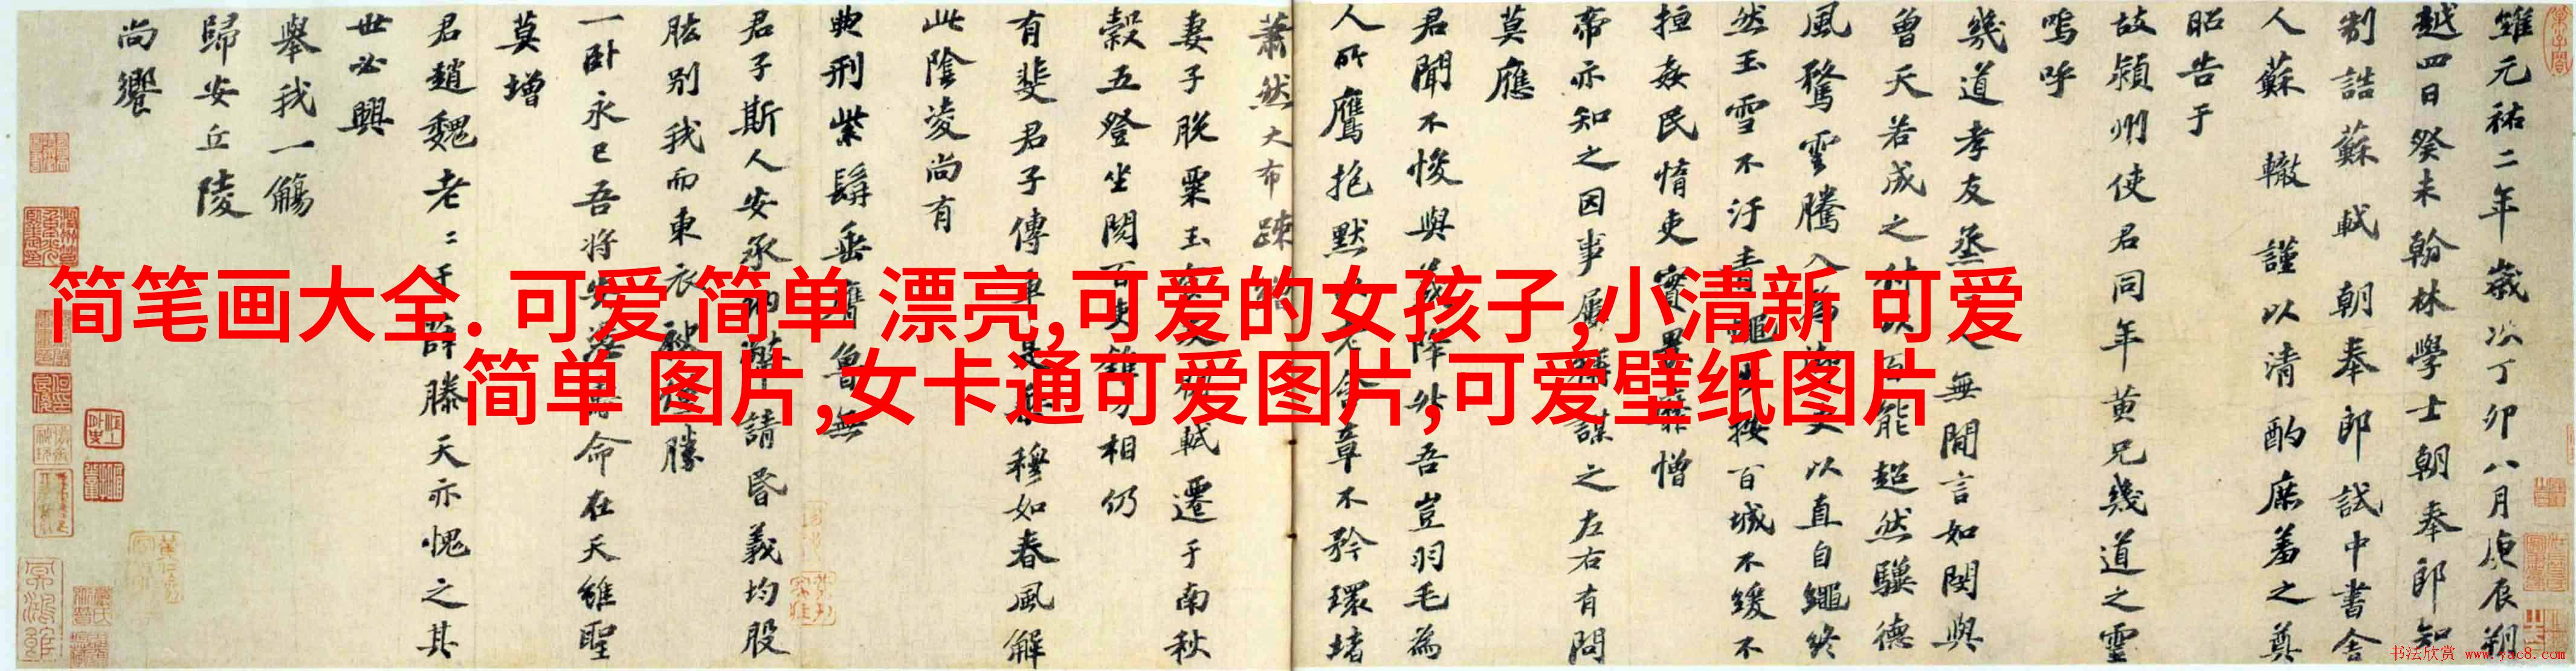 維元祐二年歲次丁卯八月庚辰朔
越四日癸未翰林學士朝奉郎知
制誥蘇軾朝奉郎試中書舍
人蘇轍謹以清酌庶羞之奠
昭告于
故潁州使君同年黃兄幾道之靈
嗚呼
幾道孝友烝烝人無間言如閔與
曾天若成之付以百能超然驥德
風騖雲騰入為御史以直自繩終
然玉雪不汙青蠅出按百城不緩不
擅姦民惰吏實畏靡憎
帝亦知之因事屢稱謀之左右有問
莫應
君聞不悛與義降升吾豈羽毛為
人所鷹抱默以老舍章不矜環堵
蕭然大布疎繒
妻子脫粟玉食友朋軾遷于南秋
穀五登坐閱百吏錐刀相仍
有斐君子傳車是乘穆如春風解
此陰凌尚有
典刑紫髯垂膺魯無
君子斯人安承納幣請昏義均股
肱別我而東衣袂僅勝
一卧永已吾將安憑壽命在天雖聖
莫增
君趙魏老二于薛滕天亦愧之其
世必興
舉我一觴
歸安丘陵
尚饗
简笔画大全. 可爱 简单 漂亮,可爱的女孩子,小清新 可爱
简单 图片,女卡通可爱图片,可爱壁纸图片
书法欣赏 www.yac8.com